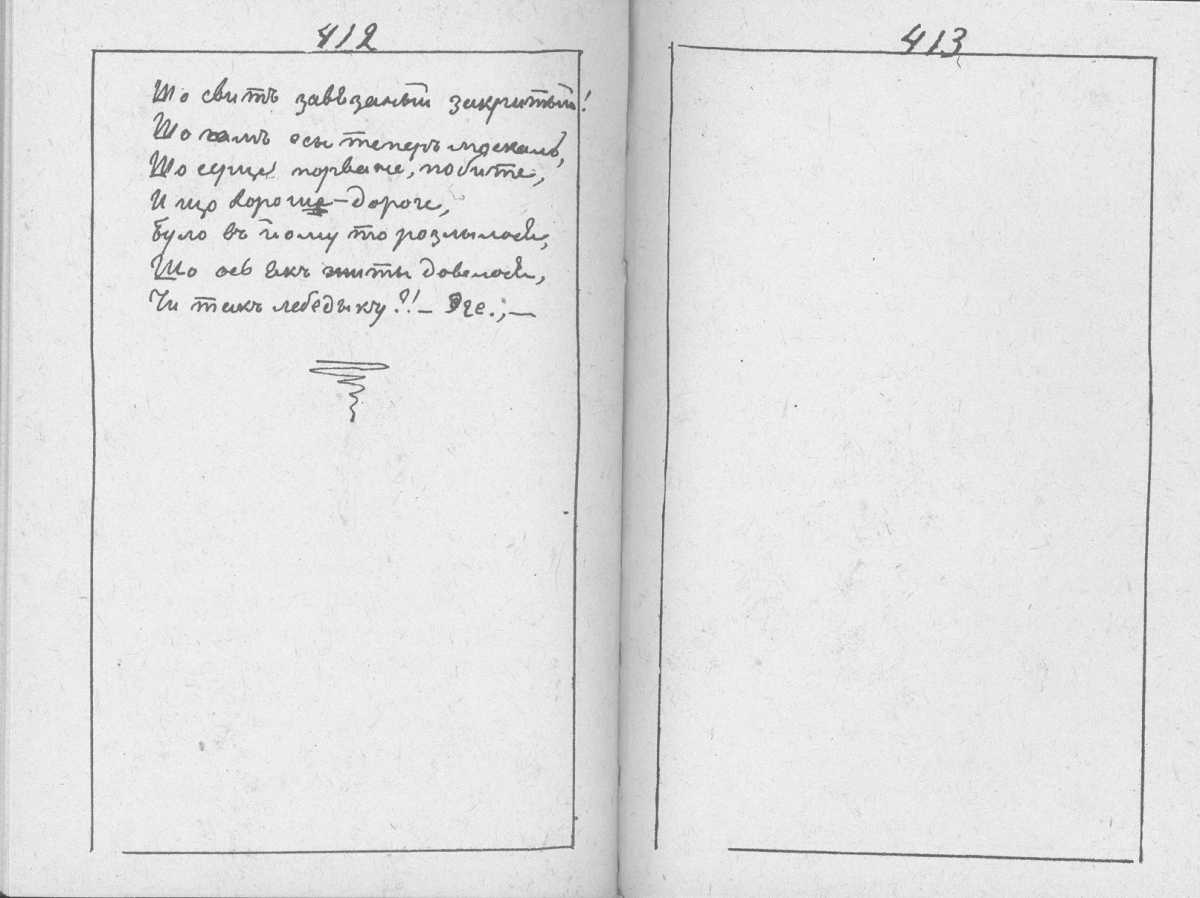 412
Що свитъ завязаный закритый!
Що самъ есы теперъ москаль,
Що серце порване, побите,
И що хороше-дороге,
Було въ йому то розлылося,
Що ось якъ житы довелося,
Чи такъ лебедыку?!—
413